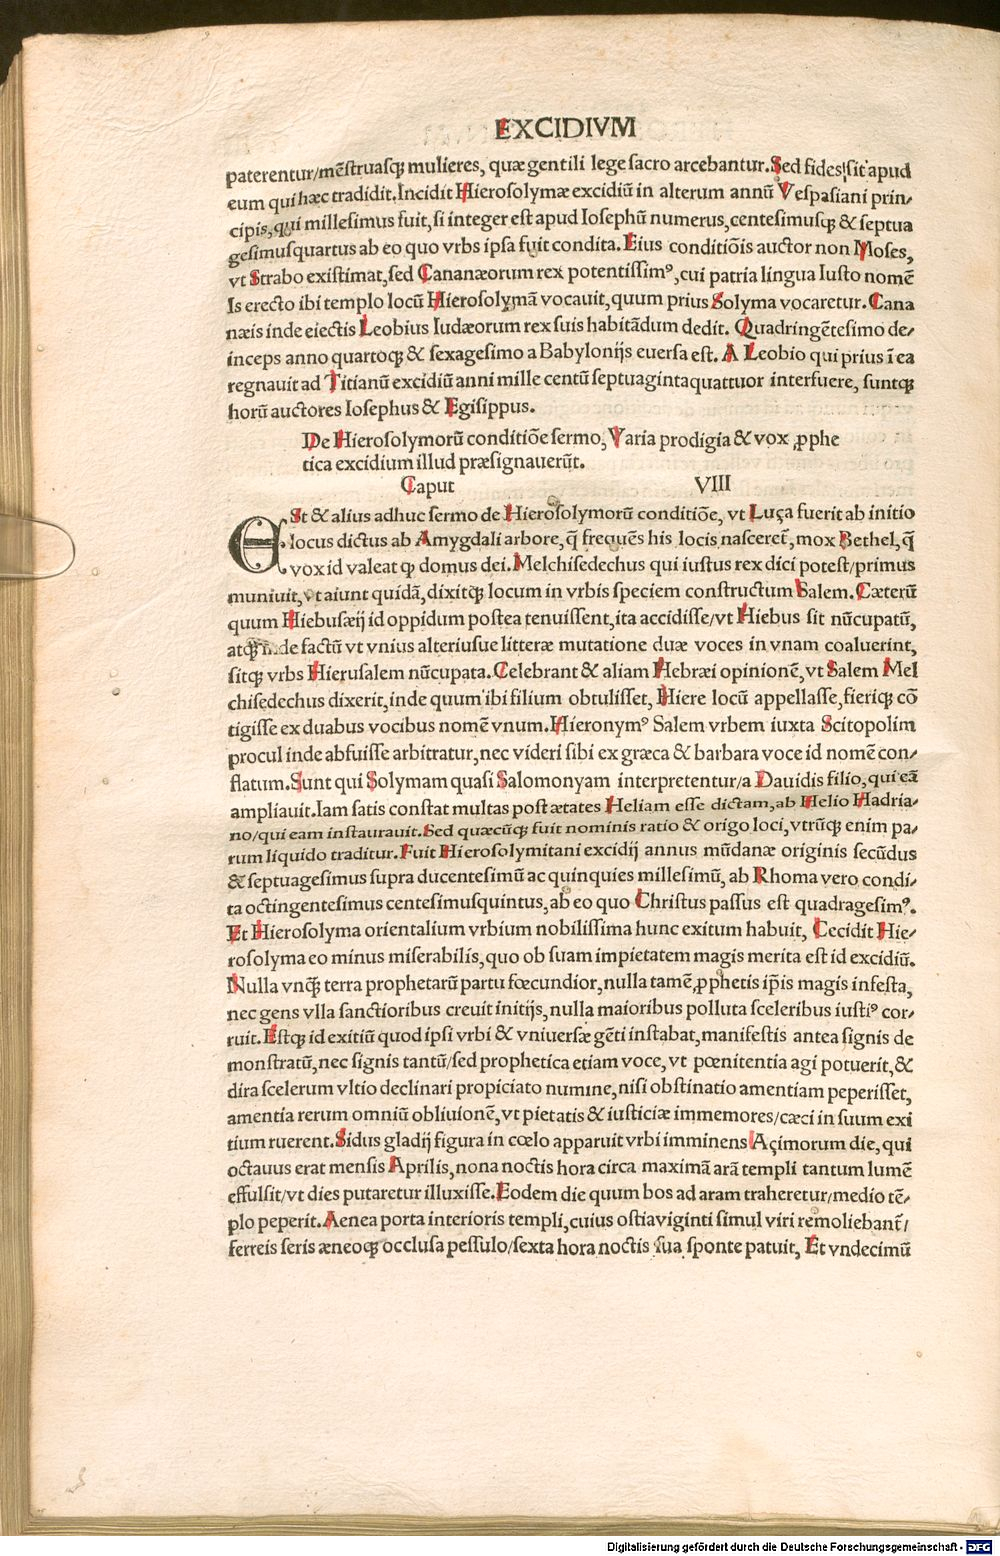 EXCIDIVM
paterentur/mēſtruaſqꝫ mulieres, quæ gentili lege ſacro arcebantur. Sed fides ſit apud
eum qui hæc tradidit. Incidit Hieroſolymæ excidiū in alterum annū Veſpaſiani prin⸗
cipis, qui milleſimus fuit, ſi integer eſt apud Ioſephū numerus, centeſimuſqꝫ & ſeptua
geſimuſquartus ab eo quo vrbs ipſa fuit condita. Eius conditiōis auctor non Moſes,
vt Strabo exiſtimat, ſed Cananæorum rex potentiſſimꝰ, cui patria lingua Iuſto nomē
Is erecto ibi templo locū Hieroſolymā vocauit, quum prius Solyma vocaretur. Cana
næis inde eiectis Leobius Iudæorum rex ſuis habitādum dedit. Quadringēteſimo de⸗
inceps anno quartoqꝫ & ſexageſimo a Babylonijs euerſa eſt. A Leobio qui prius ī ea
regnauit ad Titianū excidiū anni mille centū ſeptuagintaquattuor interfuere, ſuntqꝫ
horū auctores Ioſephus & Egiſippus.
De Hieroſolymorū conditiōe ſermo, Varia prodigia & vox ꝓphe
tica excidium illud præſignauerūt.
Caput VIII
ESt & alius adhuc ſermo de Hieroſolymorū conditiōe, vt Luça fuerit ab initio
locus dictus ab Amygdali arbore, q̄ frequēs his locis naſceret̄, mox Bethel, q̄
vox id valeat qꝫ domus dei. Melchiſedechus qui iuſtus rex dici poteſt/primus
muniuit, vt aiunt quidā, dixitqꝫ locum in vrbis ſpeciem conſtructum Salem. Cæterū
quum Hiebuſæij id oppidum poſtea tenuiſſent, ita accidiſſe/vt Hiebus ſit nūcupatū,
atqꝫ inde factū vt vnius alteriuſue litteræ mutatione duæ voces in vnam coaluerint,
ſitqꝫ vrbs Hieruſalem nūcupata. Celebrant & aliam Hebræi opinionē, vt Salem Mel
chiſedechus dixerit, inde quum ibi filium obtuliſſet, Hiere locū appellaſſe, fieriqꝫ cō
tigiſſe ex duabus vocibus nomē vnum. Hieronymꝰ Salem vrbem iuxta Scitopolim
procul inde abfuiſſe arbitratur, nec videri ſibi ex græca & barbara voce id nomē con⸗
flatum. Sunt qui Solymam quaſi Salomonyam interpretentur/a Dauidis filio, qui eā
ampliauit. Iam ſatis conſtat multas poſt ætates Heliam eſſe dictam, ab Helio Hadria⸗
no/qui eam inſtaurauit. Sed quæcūqꝫ fuit nominis ratio & origo loci, vtrūqꝫ enim pa⸗
rum liquido traditur. Fuit Hieroſolymitani excidij annus mūdanæ originis ſecūdus
& ſeptuageſimus ſupra ducenteſimū ac quinquies milleſimū, ab Rhoma vero condi⸗
ta octingenteſimus centeſimuſquintus, ab eo quo Chriſtus paſſus eſt quadrageſimꝰ.
Et Hieroſolyma orientalium vrbium nobiliſſima hunc exitum habuit, Cecidit Hie⸗
roſolyma eo minus miſerabilis, quo ob ſuam impietatem magis merita eſt id excidiū.
Nulla vnqꝫ̄ terra prophetarū partu fœcundior, nulla tamē ꝓphetis ip̄is magis infeſta,
nec gens vlla ſanctioribus creuit initijs, nulla maioribus polluta ſceleribus iuſtiꝰ cor⸗
ruit. Eſtqꝫ id exitiū quod ipſi vrbi & vniuerſæ gēti inſtabat, manifeſtis antea ſignis de
monſtratū, nec ſignis tantū/ſed prophetica etiam voce, vt pœnitentia agi potuerit, &
dira ſcelerum vltio declinari propiciato numine, niſi obſtinatio amentiam peperiſſet,
amentia rerum omniū obliuionē, vt pietatis & iuſticiæ immemores/cæci in ſuum exi
tium ruerent. Sidus gladij figura in cœlo apparuit vrbi imminens Açimorum die, qui
octauus erat menſis Aprilis, nona noctis hora circa maximā arā templi tantum lumē
effulſit/vt dies putaretur illuxiſſe. Eodem die quum bos ad aram traheretur/medio tē⸗
plo peperit. Aenea porta interioris templi, cuius oſtia viginti ſimul viri remoliebant̄/
ferreis ſeris æneoqꝫ occluſa peſſulo/ſexta hora noctis ſua ſponte patuit, Et vndecimū
Digitalisierung gefördert durch die Deutsche Forschungsgemeinschaft - DFG